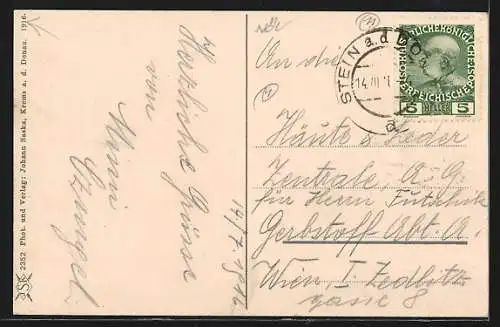 2352 Phot. und Verlag: Johann Saska, Krems a. d. Donau. 1916.
Herzliche Grüsse
von
14/7 1916
An die
Häute u Leder
Zentrale, A-G.
für Herrn
Gerbstoff Abt. A.
Wien I. Zedlitz
gasse 8
STEIN a. d. DO
KAISERLICHE KÖNIGLICHE
ÖSTERREICHISCHE
5 HELLER 5